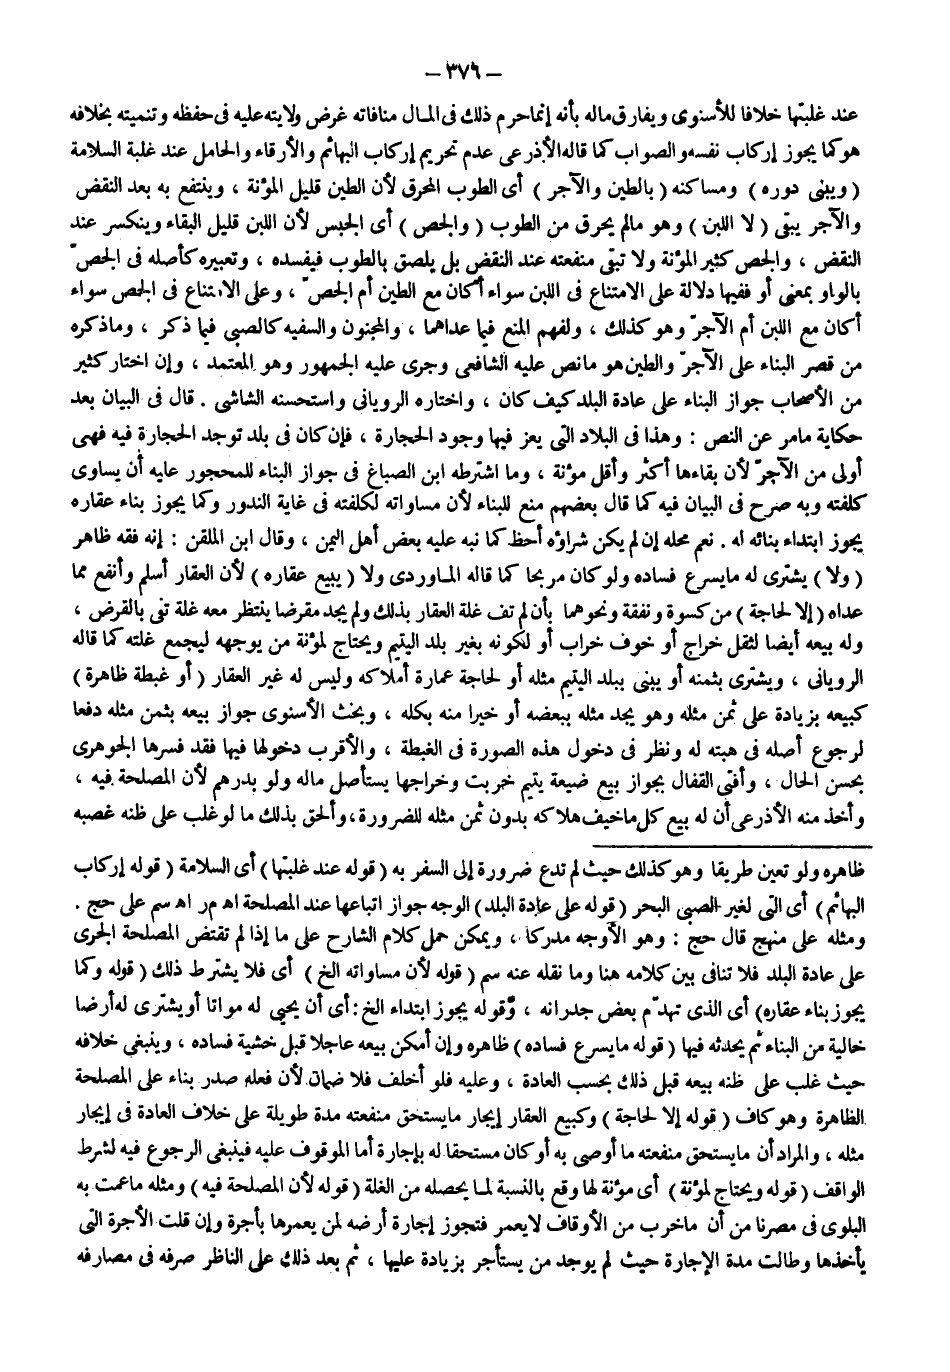 — ٣٧٦ —
عند غلبتها خلافا للأسنوى ويفارق ماله بأنه إنما حرم ذلك فى المال منافاته غرض ولايته عليه فى حفظه وتنميته بخلافه
هو كما يجوز إركاب نفسه والصواب كما قاله الأذرعى عدم تحريم إركاب البهائم والأرقاء والحامل عند غلبة السلامة
( ويبنى دوره ) ومساكنه ( بالطين والآجر ) أى الطوب المحرق لأن الطين قليل المؤنة ، وينتفع به بعد النقض
والآجر يبقى ( لا اللبن ) وهو مالم يحرق من الطوب ( والجص ) أى الجبس لأن اللبن قليل البقاء وينكسر عند
النقض ، والجص كثير المؤنة ولا تبقى منفعته عند النقض بل يلصق بالطوب فيفسده ، وتعبيره كأصله فى الجصّ
بالواو بمعنى أو ففيها دلالة على الامتناع فى اللبن سواء أكان مع الطين أم الجصّ ، وعلى الامتناع فى الجص سواء
أكان مع اللبن أم الآجرّ وهو كذلك ، ولفهم المنع فيما عداهما ، والمجنون والسفيه كالصبى فيما ذكر ، وماذكره
من قصر البناء على الآجرّ والطين هو مانص عليه الشافعى وجرى عليه الجمهور وهو المعتمد ، وإن اختار كثير
من الأصحاب جواز البناء على عادة البلد كيف كان ، واختاره الرويانى واستحسنه الشاشى . قال فى البيان بعد
حكاية مامر عن النص : وهذا فى البلاد التى يعز فيها وجود الحجارة ، فإن كان فى بلد توجد الحجارة فيه فهى
أولى من الآجرّ لأن بقاءها أكثر وأقل مؤنة ، وما اشترطه ابن الصباغ فى جواز البناء للمحجور عليه أن يساوى
كلفته وبه صرح فى البيان فيه كما قال بعضهم منع للبناء لأن مساواته لكلفته فى غاية الندور وكما يجوز بناء عقاره
يجوز ابتداء بنائه له . نعم محله إن لم يكن شراؤه أحظ كما نبه عليه بعض أهل اليمن ، وقال ابن الملقن : إنه فقه ظاهر
( ولا ) يشترى له مايسرع فساده ولو كان مربحا كما قاله الماوردى ولا ( يبيع عقاره ) لأن العقار أسلم وأنفع مما
عداه ( إلا لحاجة ) من كسوة ونفقة ونحوهما بأن لم تف غلة العقار بذلك ولم يجد مقرضا ينتظر معه غلة تفى بالقرض ،
وله بيعه أيضا لثقل خراج أو خوف خراب أو لكونه بغير بلد اليتيم ويحتاج لمؤنة من يوجهه ليجمع غلته كما قاله
الرويانى ، ويشترى بثمنه أو يبنى ببلد اليتيم مثله أو لحاجة عمارة أملاكه وليس له غير العقار ( أو غبطة ظاهرة )
كبيعه بزيادة على ثمن مثله وهو يجد مثله ببعضه أو خيرا منه بكله ، وبحث الأسنوى جواز بيعه بثمن مثله دفعا
لرجوع أصله فى هبته له ونظر فى دخول هذه الصورة فى الغبطة ، والأقرب دخولها فيها فقد فسرها الجوهرى
بحسن الحال ، وأفتى القفال بجواز بيع ضيعة يتيم خربت وخراجها يستأصل ماله ولو بدرهم لأن المصلحة فيه ،
وأخذ منه الأذرعى أن له بيع كل ماخيف هلاكه بدون ثمن مثله للضرورة، وألحق بذلك ما لو غلب على ظنه غصبه
ظاهره ولو تعين طريقا وهو كذلك حيث لم تدع ضرورة إلى السفر به ( قوله عند غلبتها ) أى السلامة ( قوله إركاب
البهائم ) أى التى لغير الصبى البحر ( قوله على عادة البلد ) الوجه جواز اتباعها عند المصلحة اه م ر اه سم على حج .
ومثله على منهج قال حج : وهو الأوجه مدركا ، ويمكن حمل كلام الشارح على ما إذا لم تقتض المصلحة الجرى
على عادة البلد فلا تنافى بين كلامه هنا وما نقله عنه سم ( قوله لأن مساواته الخ ) أى فلا يشترط ذلك ( قوله وكما
يجوز بناء عقاره ) أى الذى تهدّم بعض جدرانه ، وقوله يجوز ابتداء الخ : أى أن يحيى له مواتا أو يشترى له أرضا
خالية من البناء ثم يحدثه فيها ( قوله مايسرع فساده ) ظاهره وإن أمكن بيعه عاجلا قبل خشية فساده ، وينبغى خلافه
حيث غلب على ظنه بيعه قبل ذلك بحسب العادة ، وعليه فلو أخلف فلا ضمان لأن فعله صدر بناء على المصلحة
الظاهرة وهو كاف ( قوله إلا لحاجة ) وكبيع العقار إيجار مايستحق منفعته مدة طويلة على خلاف العادة فى إيجار
مثله ، والمراد أن مايستحق منفعته ما أوصى به أو كان مستحقا له بإجارة أما الموقوف عليه فينبغى الرجوع فيه لشرط
الواقف ( قوله ويحتاج لمؤنة ) أى مؤنة لها وقع بالنسبة لما يحصله من الغلة ( قوله لأن المصلحة فيه ) ومثله ماعمت به
البلوى فى مصرنا من أن ماخرب من الأوقاف لا يعمر فتجوز إجارة أرضه لمن يعمرها بأجرة وإن قلت الأجرة التى
يأخذها وطالت مدة الإجارة حيث لم يوجد من يستأجر بزيادة عليها ، ثم بعد ذلك على الناظر صرفه فى مصارفه